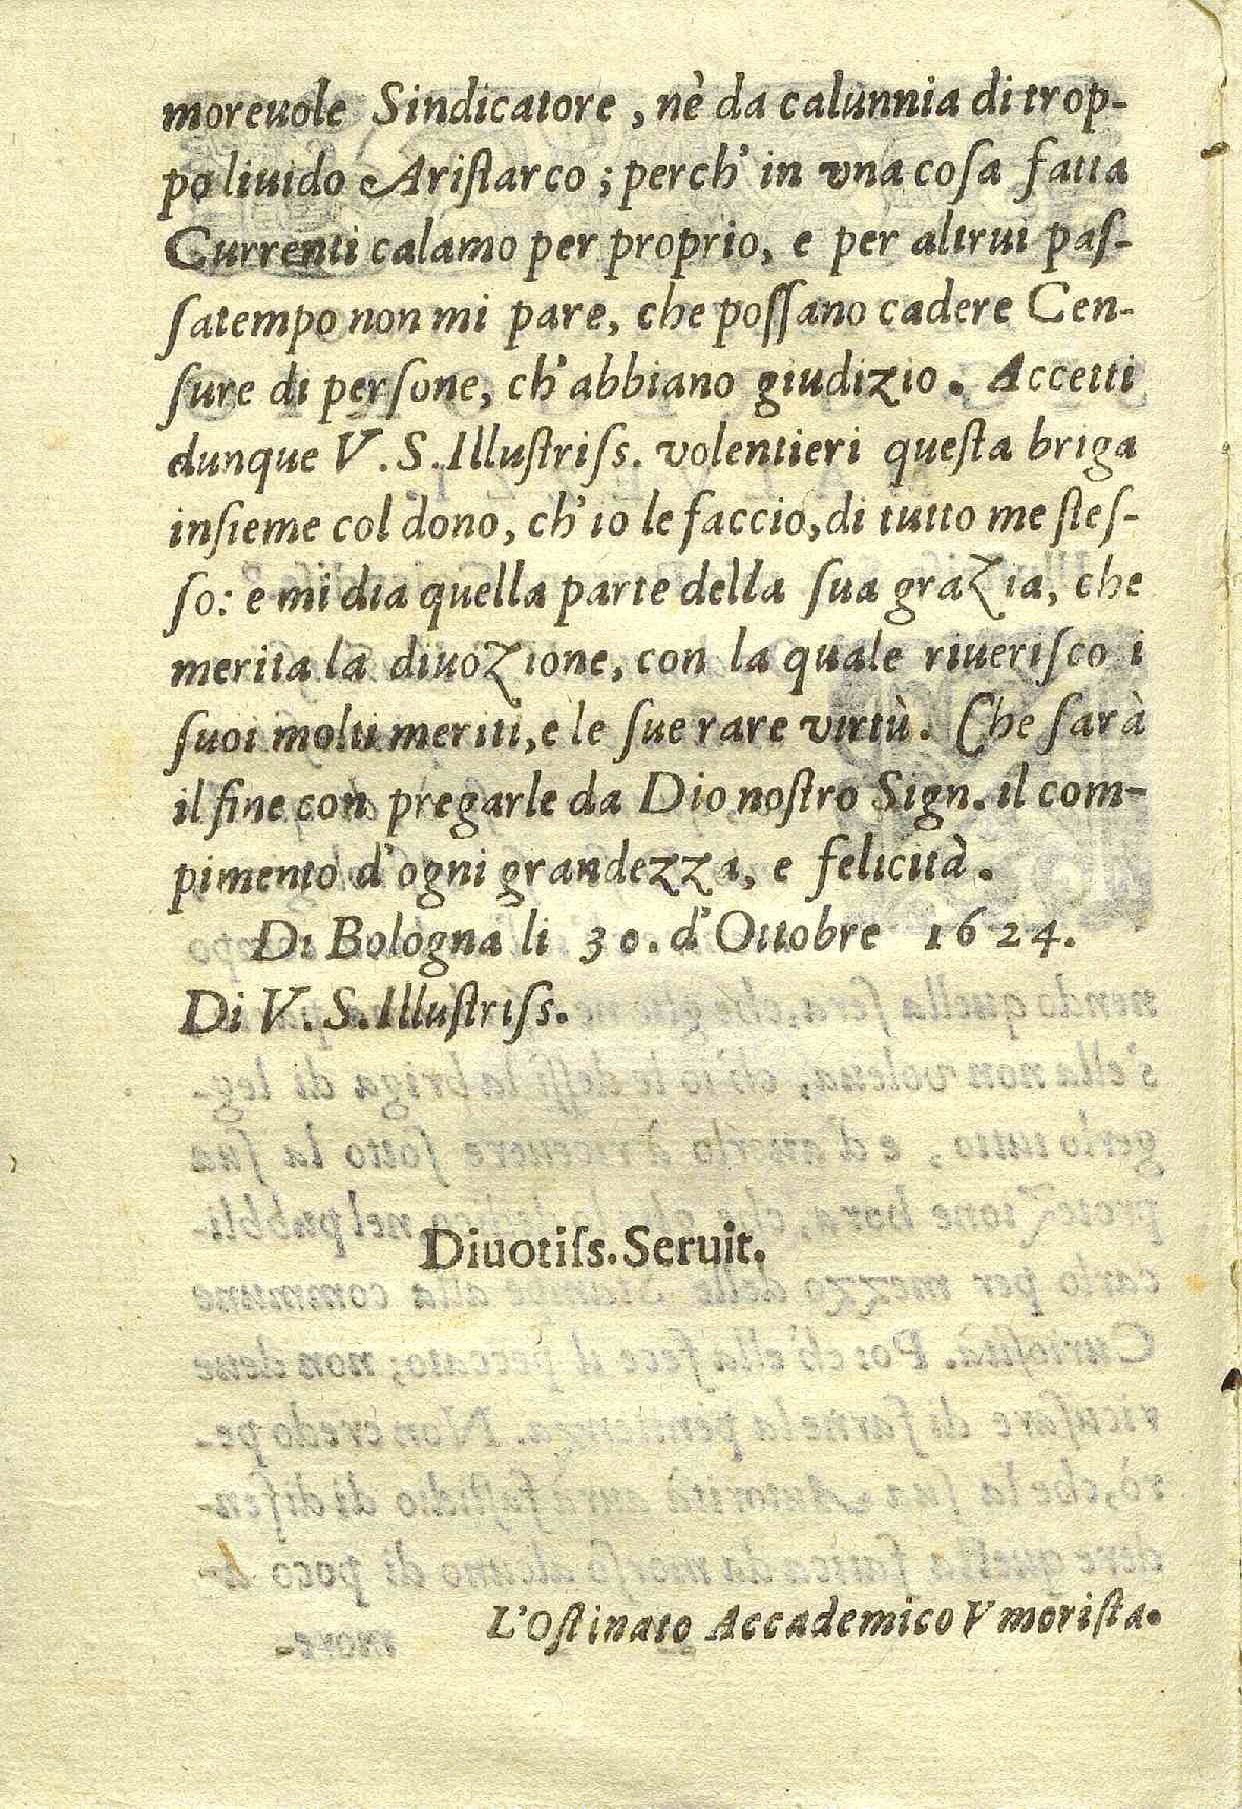 moreuole Sindicatore, nè da calunnia di trop-
po liuido Ariſtarco; perch' in vna coſa fatta
Currenti calamo per proprio, e per altrui paſ-
ſatempo non mi pare, che poſſano cadere Cen-
ſure di perſone, ch'abbiano giudizio. Accetti
dunque V. S. Illuſtriſs. volentieri queſta briga
inſieme col dono, ch'io le faccio, di tutto me ſteſ-
ſo: e mi dia quella parte della ſua grazia, che
merita la diuozione, con la quale riueriſco i
ſuoi molti meriti, e le ſue rare virtù. Che ſarà
il fine con pregarle da Dio noſtro Sign. il com-
pimento d'ogni grandezza, e felicità.
Di Bologna li 30. d'Ottobre 1624.
Di V. S. Illuſtriſs.
Diuotiſs. Seruit.
L'Oſtinato Accademico Vmoriſta.